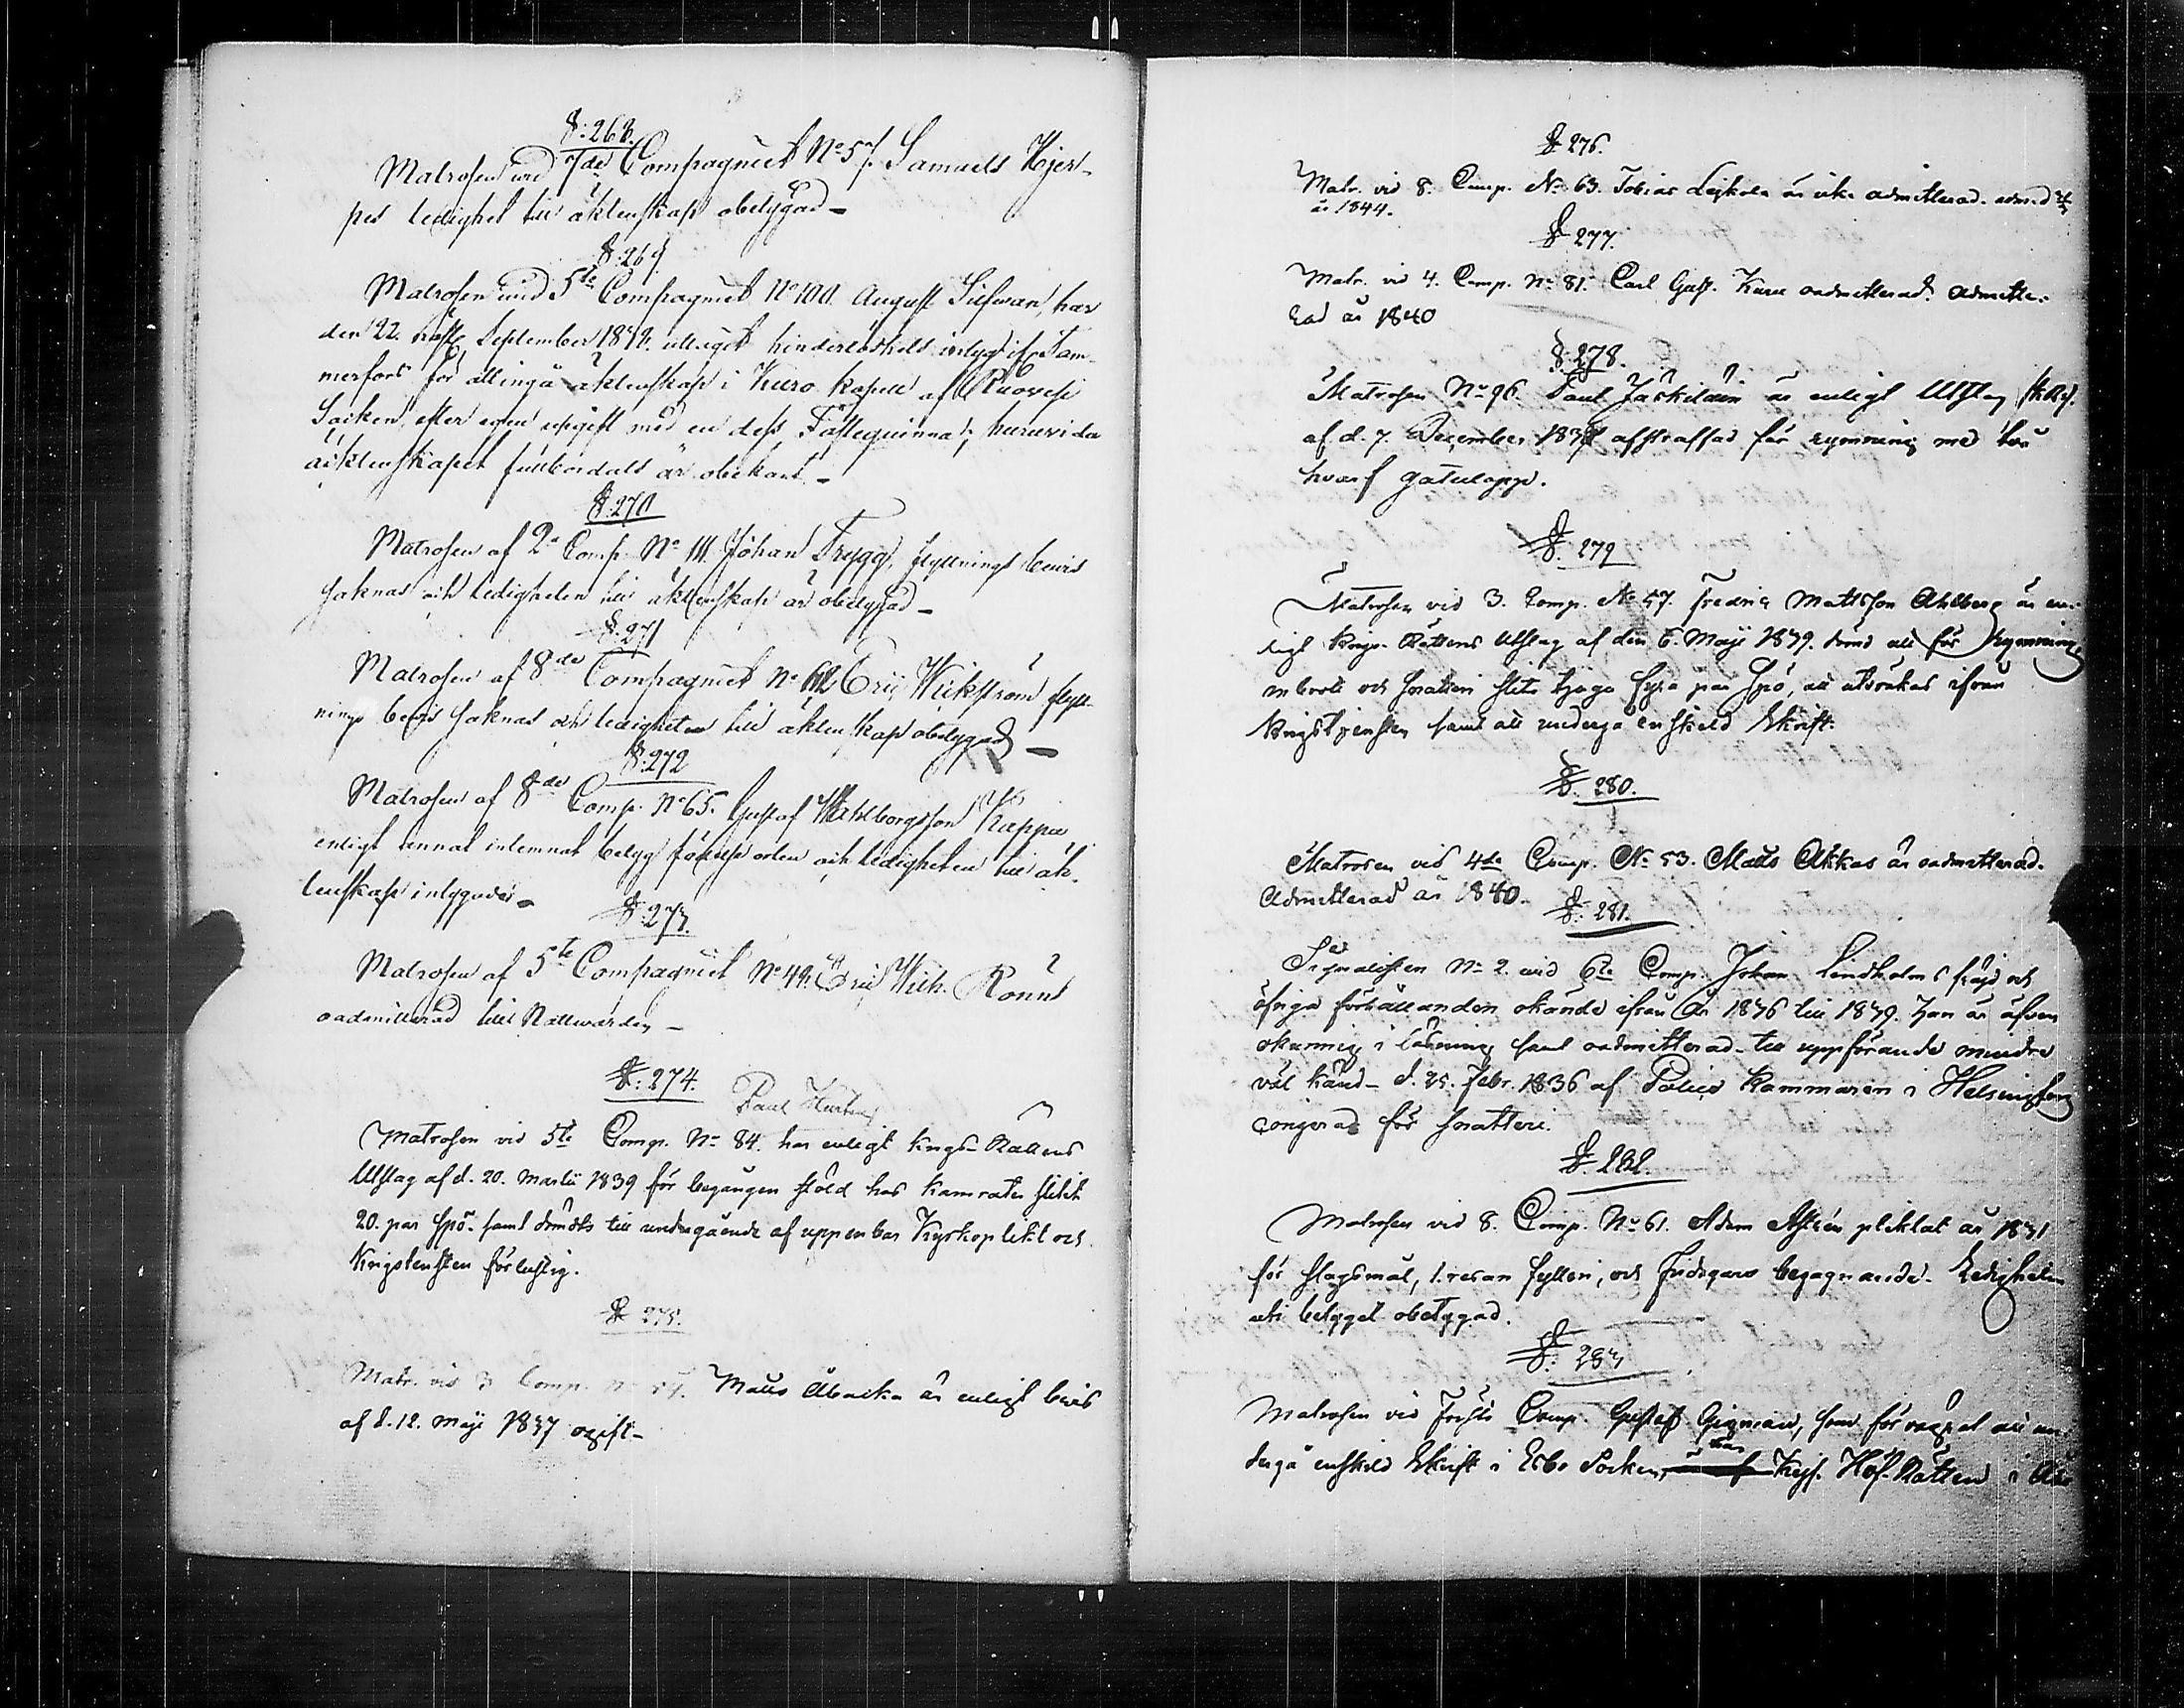 §: 268.
Matrosen vid 7de Compagniet No 57. Samuels Hjer-
pes ledighet till äktenskap obetygad -
§: 269
Matrosen vid 5te Compagniet No 100. August Sifwan, har
den 22. September 1838. uttagit hinderlöshets Tam-
merfors för att ingå äktenskap i Kuro kapell af Ruovesi
Socken, efter egen uppgift med en dess Fästeqvinna; huruvida
äktenskapet fullbordats är obekant. -
§: 270
Matrosen af 2a Comp. No 111. Johan Trygg, flyttnings bevis
saknas och ledigheten till äktenskap är obetygad -
§: 271
Matrosen af 8de Compagniet No 62 Eric Wickström flytt-
nings bevis saknas och ledigheten till äktenskap obetygad -
§: 272
Matrosen af 8de Comp. No 65. Gustaf Wahlborgsson Kappa
enligt annat inlemnat betyg födelse orten och ledigheten till äk-
tenskap intygades -
§: 273.
Matrosen af 5te Compagniet No 49. Eric Wilh. Rönns
oadmitterad till Nattwarden -
§: 274.
Paul
Matrosen vid 5te Comp. No 84. har enligt Krigs-Rättens
Utslag af d. 20. Martii 1839 för begången stöld hos kamrater slitit
20. par spö. samt dömdts till undergående af uppenbar Kyrkoplikt och
Krigstensten förlustig.
§ 275.
Matr. vid 3 Comp. No 57. Matts Abacka är enligt bevis
af d. 12. Maji 1837 ogift -
§ 276.
Matr. vid 8. Comp. No 63. Tobias Lejkola är icke admitterad.
år 1844.
§ 277.
Matr. vid 4. Comp. No 81. Carl Gust. Kura oadmitterad. admitte-
rad år 1840
§: 278.
Matrosen No 96. Paul Jäskiläin är enligt Utslag
af d. 7. December 1838 afstraffad för rymning med två
hvarf gatulopp.
§: 279
Matrosen vid 3. Comp. No 57. Fredric Mattsson Ahlberg är en-
ligt Krigs-Rättens Utslag af den 6. Maji 1839. dömd att för Rymning
inbrott och snatteri slita tjugo fyra par Spö, att utstrykas ifrån
Krigstjensten samt att undergå enskild Skrift.
§: 280.
Matrosen vid 4de Comp. No 53. Matts Akkas är oadmitterad.
Admitterad år 1840.
§: 281.
Signalisten No 2. vid 6te Comp. Johan Lindholms frejd och
öfriga förhållanden okände ifrån År 1836 till 1839. Han är äfven
okunnig i läsning samt oadmitterad - till uppförande mindre
väl känd - d. 25. Febr. 1836 af Police Kammaren i Helsingfors
corigerad för snatteri.
§: 282.
Matrosen vid 8. Comp. No 61. Adam Astrén pliktat år 1831
för slagsmål, 1. resan fylleri, och Fridsqvars begagnande. Ledigheten
uti betyget obetygad.
§: 283
Matrosen vid Första Comp. Gustaf Gigman, som för vägrat att un-
dergå enskild Skrift i Esbo Socken, har Kejs. Hof-Rätten i Åbo